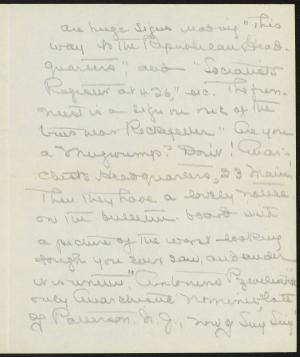 are huge signs reading "This
way to the Republican Head-
quarters", and "Socialists
Register at 26", etc. The fun-
niest is a sign on one of the
trees near Rockefeller "Are you
a Mugwump? Don't! Anar-
chists Headquarters, 23 Main!"
Then they have a lovely notice
on the bulletin board with
a picture of the worst-looking
tough you ever saw, and under
it is written "Antonino
only Anarchistic Nominee, late
of Paterson, N.J., now of Sing Sing"